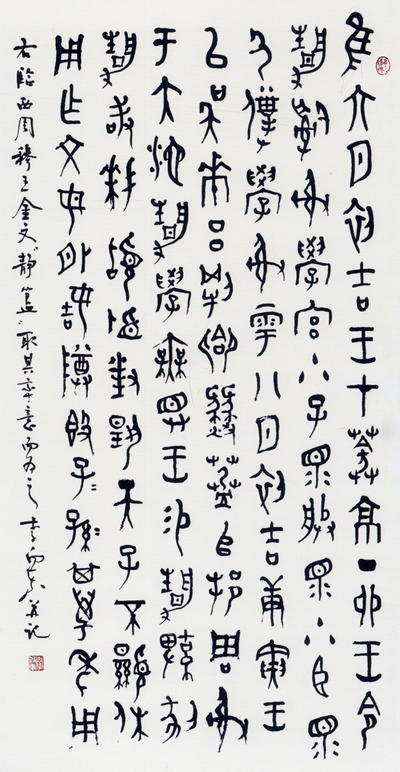 隹六月初吉王才𦸗京丁卯王令
靜𤔲射學宮小子眔服眔小臣眔
尸僕學射雩八月初吉庚寅王
以吳𠦪呂犅卿𠂤邦周射
于大池靜學無斁王易靜鞞剢
靜敢拜𩒨首對揚天子不顯休
用乍文母外姞尊𣪘子=孫=其萬年用
右臨西周穆王金文靜簋取其率意而为之 李并記